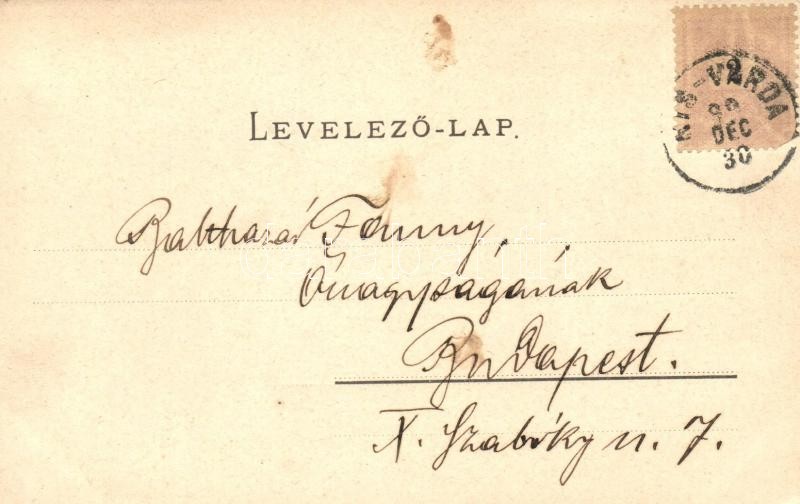 LEVELEZŐ-LAP.
KIS-VÁRDA
99
DEC
30
2
Balthazár Fanny,
Őnagyságának
Budapest.
X. Szabóky u. 7.